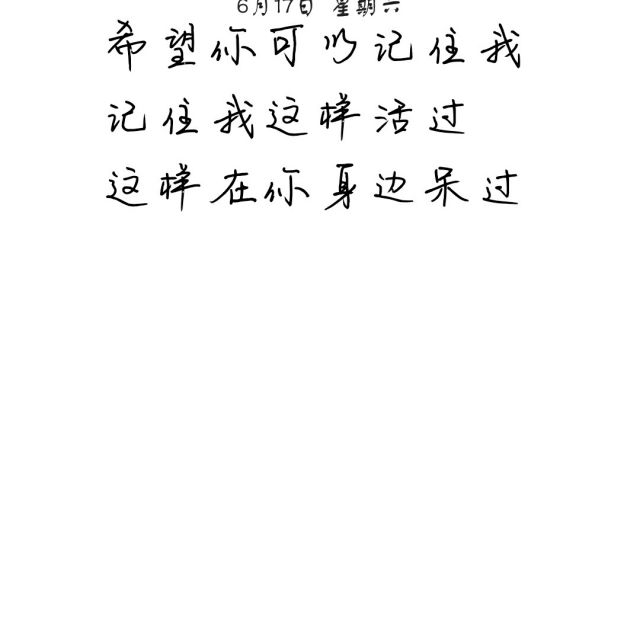 6月17日 星期六
希望你可以记住我
记住我这样活过
这样在你身边呆过